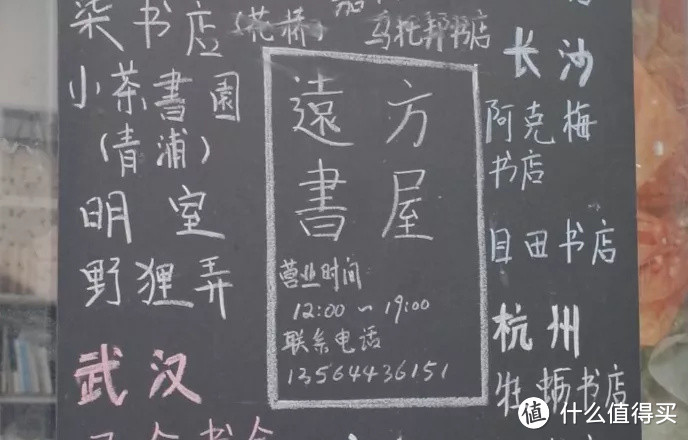 柒书店(花桥)
马托邦书店
小茶書園
(青浦)
明室
野狸弄
武汉
遠方
書屋
营业时间
12:00~19:00
联系电话
13564436151
长沙
阿克梅
书店
目田书店
杭州
牡蛎书店
值 什么值得买